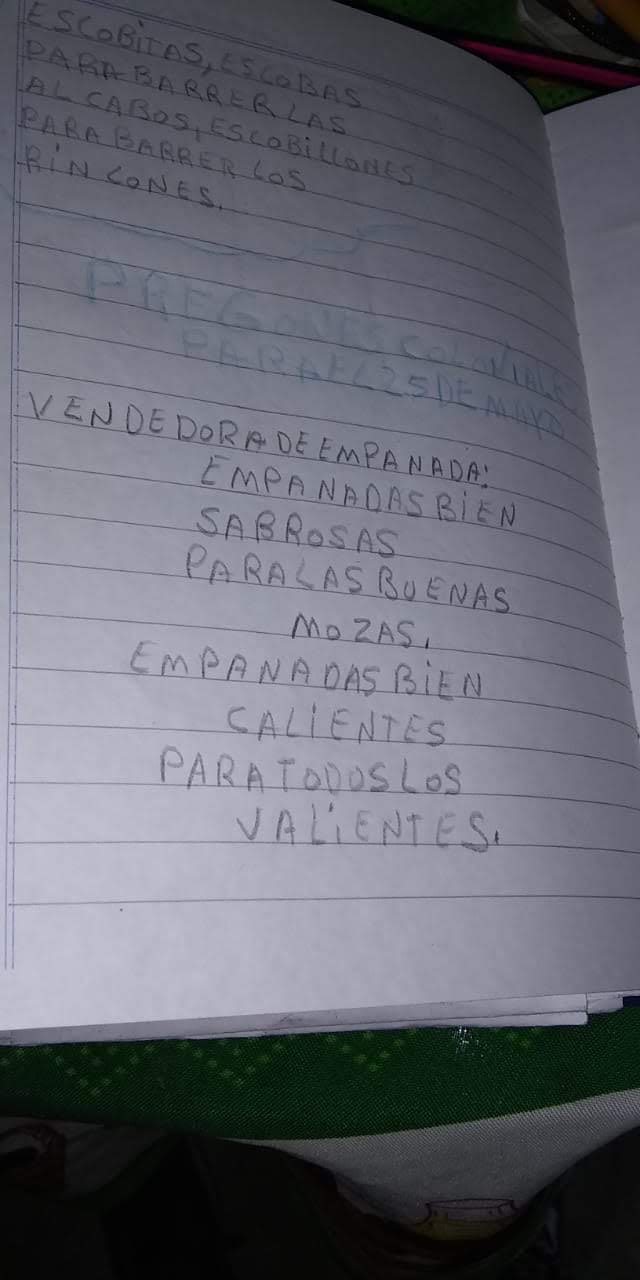 ESCOBITAS, ESCOBAS
PARA BARRER LAS
ALCABOS, ESCOBILLONES
PARA BARRER LOS
RINCONES.
PREGONES COLONIALES
PARA EL 25 DE MAYO
VENDEDORA DE EMPANADA:
EMPANADAS BIEN
SABROSAS
PARA LAS BUENAS
MOZAS,
EMPANADAS BIEN
CALIENTES
PARA TODOS LOS
VALIENTES.